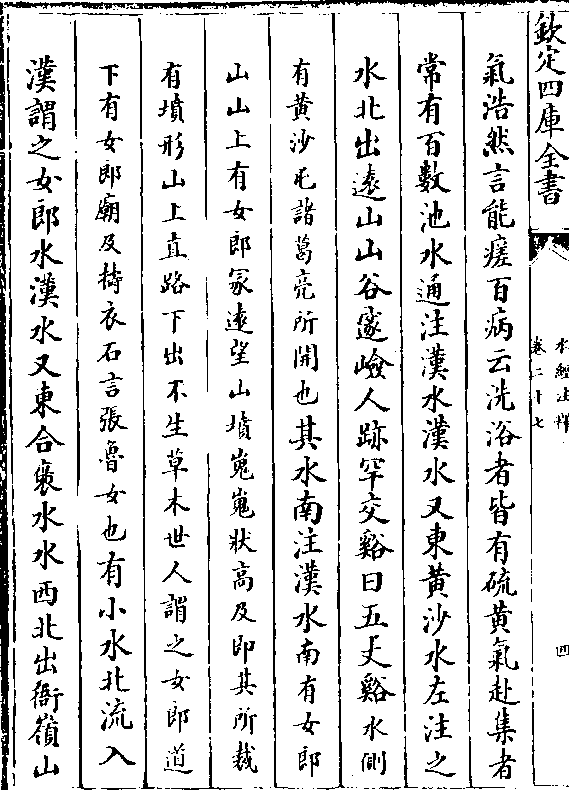 欽定四庫全書
水經注釋
卷二十七
四
氣浩然言能瘥百病云洗浴者皆有硫黄氣赴集者
常有百數池水通注漢水漢水又東黄沙水左注之
水北出遠山山谷邃嶮人跡罕交谿曰五丈谿水側
有黄沙屯諸葛亮所開也其水南注漢水南有女郎
山山上有女郎冢遠望山墳嵬嵬狀高及即其所裁
有墳形山上直路下出不生草木世人謂之女郎道
下有女郎廟及擣衣石言張魯女也有小水北流入
漢謂之女郎水漢水又東合褒水水西北出衙嶺山